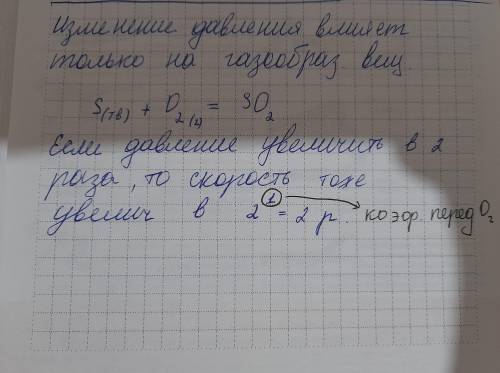 Изменение давления влияет
только на газообраз. вещ.
S(тв) + O2(г) = SO2
Если давление увеличить в 2
раза, то скорость тоже
увелич в 2^1 = 2 р. коэф. перед O2